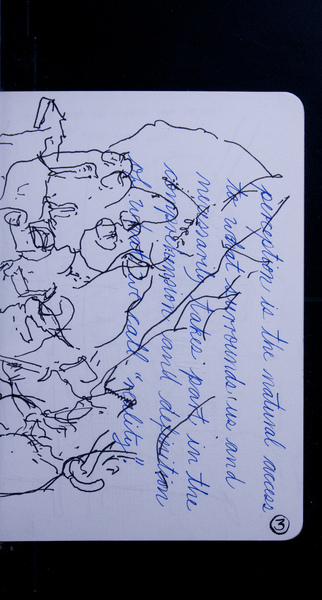 perception is the natural access
to what surrounds us and
nessarily takes part in the
comprehension and definition
of what we call "reality"
3